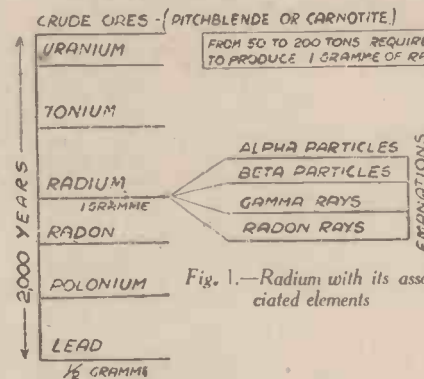 CRUDE ORES - (PITCHBLENDE OR CARNOTITE.)
URANIUM
FROM 50 TO 200 TONS REQUIRE
TO PRODUCE 1 GRAMME OF RA
IONIUM
RADIUM
1 GRAMME
RADON
POLONIUM
LEAD
1/2 GRAMME
2,000 YEARS
ALPHA PARTICLES
BETA PARTICLES
GAMMA RAYS
RADON RAYS
EMANATIONS
Fig. 1.—Radium with its asso-
ciated elements